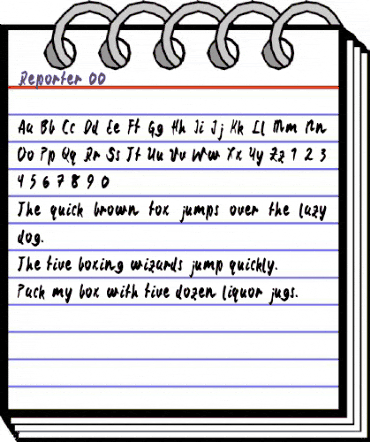 Reporter OO
Aa Bb Cc Dd Ee Ff Gg Hh Ii Jj Kk Ll Mm Nn
Oo Pp Qq Rr Ss Tt Uu Vv Ww Xx Yy Zz 1 2 3
4 5 6 7 8 9 0
The quick brown fox jumps over the lazy
dog.
The five boxing wizards jump quickly.
Pack my box with five dozen liquor jugs.